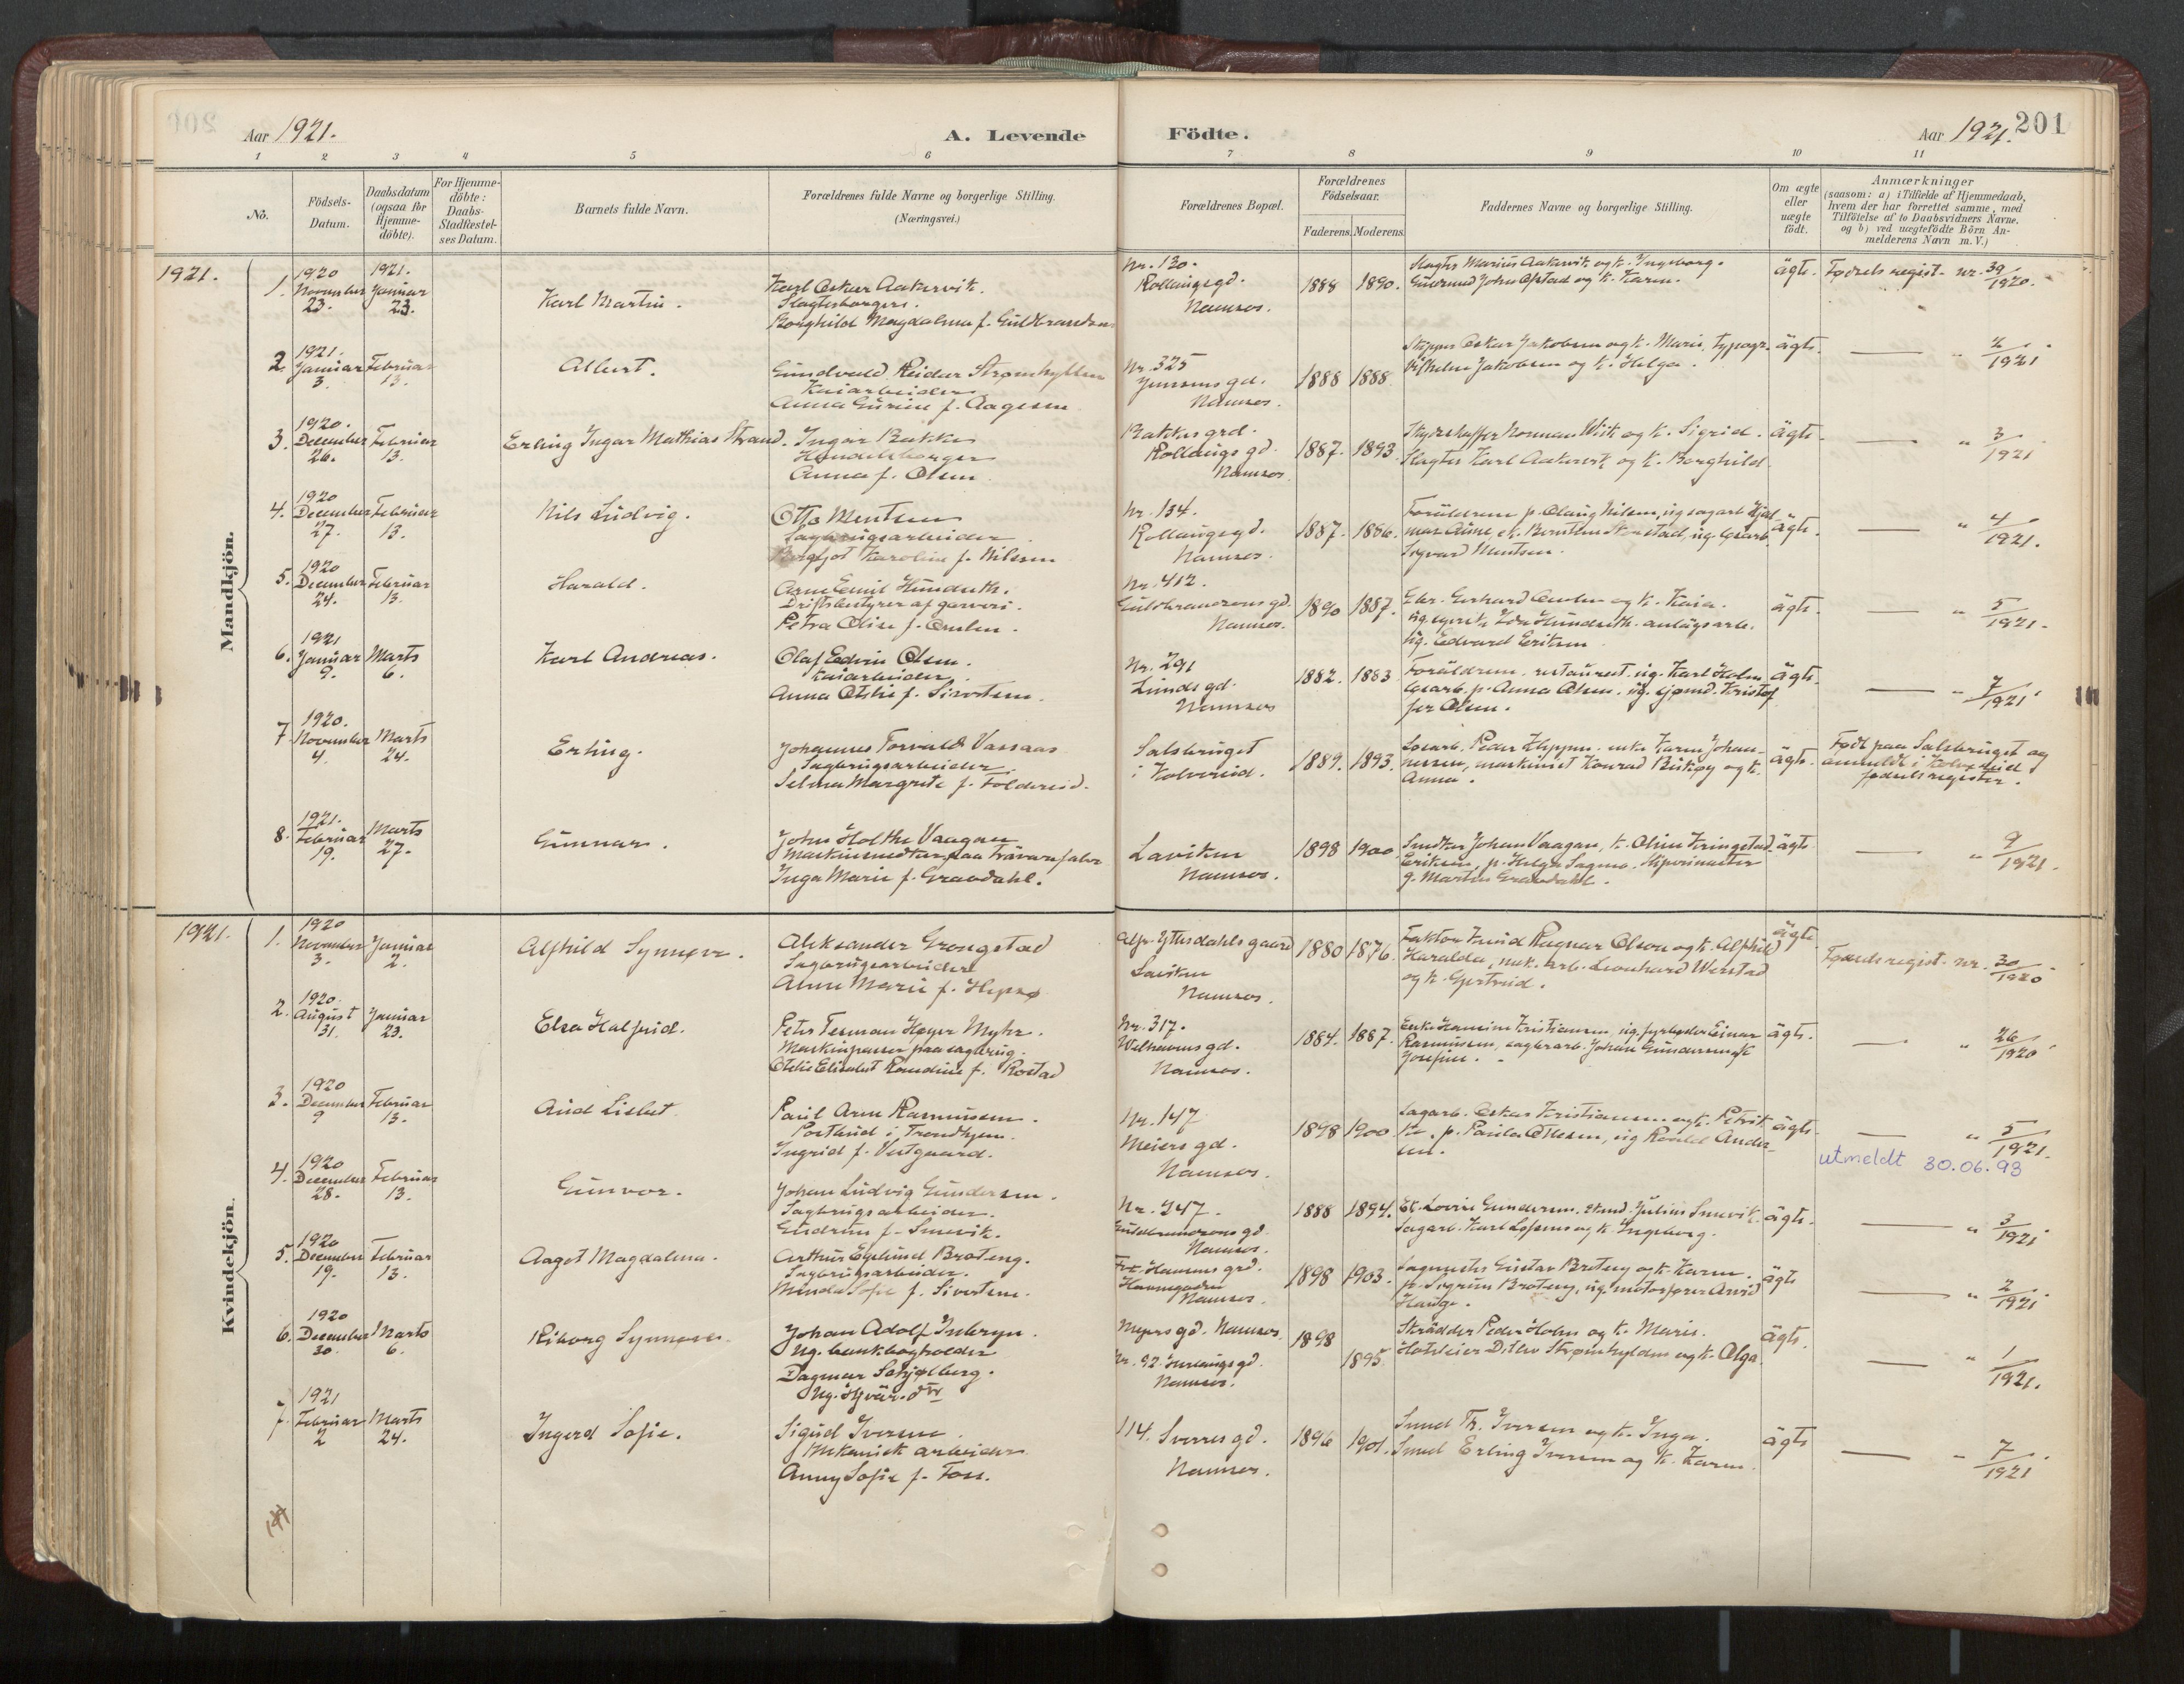 Aar 1921.
A. Levende
Födte.
Aar 1921.
201
1 2 3 4 5 6 7 8 9 10 11
No.
Födsels-
Datum.
Daabsdatum
(ogsaa for
Hjemme-
döbte).
For Hjemme-
döbte:
Daabs-
Stadfæstel-
ses Datum.
Barnets fulde Navn.
Forældrenes fulde Navne og borgerlige Stilling.
(Næringsvei.)
Forældrenes Bopæl.
Forældrenes
Födselsaar.
Faderens. Moderens.
Faddernes Navne og borgerlige Stilling.
Om ægte
eller
uægte
födt.
Anmærkninger
(saasom: a) i Tilfælde af Hjemmedaab,
hvem der har forrettet samme, med
Tilföielse af to Daabsvidners Navne.
og b) ved uægtefödte Börn An-
melderens Navn m. V.)
Mandkjön.
1921.
1.
1920
November
23.
1921.
Januar
23.
Karl Martin.
Karl Oskar Aakervik.
Slagterborger.
Borghild Magdalena f. Guldbrandsen
Nr. 120.
Rollaugsgd.
Namsos.
1888 1890.
Slagter Marius Aakervik og k. Ingeborg.
John Opstad og k. Karen.
ägte.
Fødsels regist. nr. 39/1920.
2.
1921.
Januar
3.
Februar
13.
Albert.
Gundvald Reidar Strømhyllen
Kaiarbeider
Anna Gurine f. Aagesen
Nr. 325
Jensens gd.
Namsos.
1888 1888.
Skipper Oskar Jakobsen og k. Marie, typogr.
Vilhelm Jakobsen og k. Helga.
ägte.
" 2/1921
3.
1920.
December
26.
Februar
13.
Erling Ingar Mathias Strand.
Ingar Bakke
Handelsborger
Anna f. Olsen
Bakkes grd.
Rollaugs gd.
Namsos.
1887. 1893.
Skydsskaffer Norman Wiik og k. Sigrid.
Slagter Karl Aakervik og k. Borghild
ägte.
" 3/1921
4.
1920
December
27.
Februar
13.
Nils Ludvig.
Otto Mentsen
Sagbrugsarbeider
Bergljot Karoline f. Nilssen
Nr. 134.
Rollaugsgd.
Namsos.
1887. 1886.
Forüldrene p. Olaug Nilsen, ug sagarb Hjal
mar Aune,
Sigvard Mentsen.
ägte.
" 4/1921.
5.
1920
December
24.
Februar
13.
Harald.
Arne Emil Hundseth.
Driftsbestyrer af garveri.
Petra Olise f.
Nr. 412.
Guldbrandsens gd.
Namsos.
1890 1887.
Gerhard og k. Kaia.
Hundseth. anlægsarb.
ug. Edvard Eriksen
ägte.
" 5/1921.
6.
1921
Januar
9.
Marts
6.
Karl Andreas.
Olaf Edvin Olsen.
Kaiarbeider.
Anna Otilie f. Sivertsen.
Nr. 291
Lunds gd.
Namsos
1882. 1883
Forüldrene. restaurat. ug. Karl Holm
p. Anna Olsen. ug. sjømd. Kristof
fer Olsen.
ägte.
" 7/1921.
7.
1920.
November
4.
Marts
24.
Erling.
Johannes Torvald Vassaas
Sagbrugsarbeider.
Selma Margrete f. Foldereid.
Salsbruget
i Kolvereid.
1889. 1893.
Løsarb. Peder enke Karen Johan-
nessen, maskinist Konrad og k.
Anna.
ägte.
Født paa Salsbruget og
anmeldt i Kolvereid
fødselsregister.
8.
1921.
Februar
19.
Marts
27.
Gunnar.
Johs Holthe Vaagan
Inga Marie f. Gravdahl.
Laviken
Namsos.
1898 1900.
Snedker Johan Vaagan, k. Oline
Eriksen, p. Helga
g. Martin Gravdahl.
ägte
" 9/1921.
Kvindekjön.
1921.
1.
1920
November
3.
Januar
2.
Alfhild Synnøve.
Aleksander Grongstad
Sagbrugsarbeider
Aline Marie f. Hepsø
Alfr. Ytlesdahls gaard
Laviken
Namsos.
1880 1876.
Faktor Knud Ragnar Olson og k. Alfhild
Haralda, mek. arb. Leonhard Werstad
og k. Gjertrud.
ägte
Fødsels regist. nr. 30/1920
2.
1920.
August
31.
Januar
23.
Elsa Halfrid.
Peter Tesman Høyer Myhr.
Maskinpasser paa sagbrug.
Otelie Elisabet f. Rostad
Nr. 317.
Welhavens gd.
Namsos.
1884. 1887.
Enke Hansine Kristiansen, ug. fyrbøder Einar
Rasmussen, sagbrarb. Johan Gundersen og k.
Josefine.
ägte.
" 26/1920
3.
1920
December
9
Februar
13.
Aud Lisbet
Paul Arne Rasmussen.
Postbud i Trondhjem.
Ingrid f. Vestgaard.
Nr. 147
Meiers gd.
Namsos.
1898 1900.
Sagarb. Oskar Kristiansen og k. Petrik
ke. p. Paula Ottesen, ug Roald Ander-
sen.
ägte.
" 5/1921.
utmeldt 30.06.93
4.
1920
December
28.
Februar
13.
Gunvor.
Johan Ludvig Gundersen.
Sagbrugsarbeider.
Gudrun f. Smevik.
Nr. 447.
Guldbrandsens gd.
Namsos.
1888 1894.
Lovise Gundersen. Julius Smevik.
Sagarb. Karl og k. Ingeborg.
ägte.
" 3/1921
5.
1920
December
19.
Februar
13.
Aagot Magdalena.
Arthur Edelund Brateng.
Sagbrugsarbeider.
Minda Sofie f. Sivertsen.
Fr. Hansens grd.
Havnegaden
Namsos.
1898 1903.
Sagmester Gustav Brateng og k. Karen.
p. Sigrun Brateng, ug. motorfører Arvid
Hauge.
ägte
" 2/1921
6.
1920
December
30.
Marts
6.
Riborg Synnøve.
Johan Adolf Inderyn.
Ug. bankbogholder
Dagmar Schjølberg.
Meyers gd. Namsos.
Nr. 92
Namsos.
1898
1895.
Skrädder Peder Holm og k. Marie.
Ditlev Strømhylden og k. Olga.
ägte.
" 1/1921.
7.
1921
Februar
2
Marts
24.
Ingerd Sofie.
Sigurd Iversen.
Mekanisk arbeider
Anny Sofie f. Foss.
114. Sverres gd.
Namsos.
1896 1901.
Smed Th. Iversen og k. Inga.
Smed Erling Iversen og k. Karen
ägte
" 7/1921